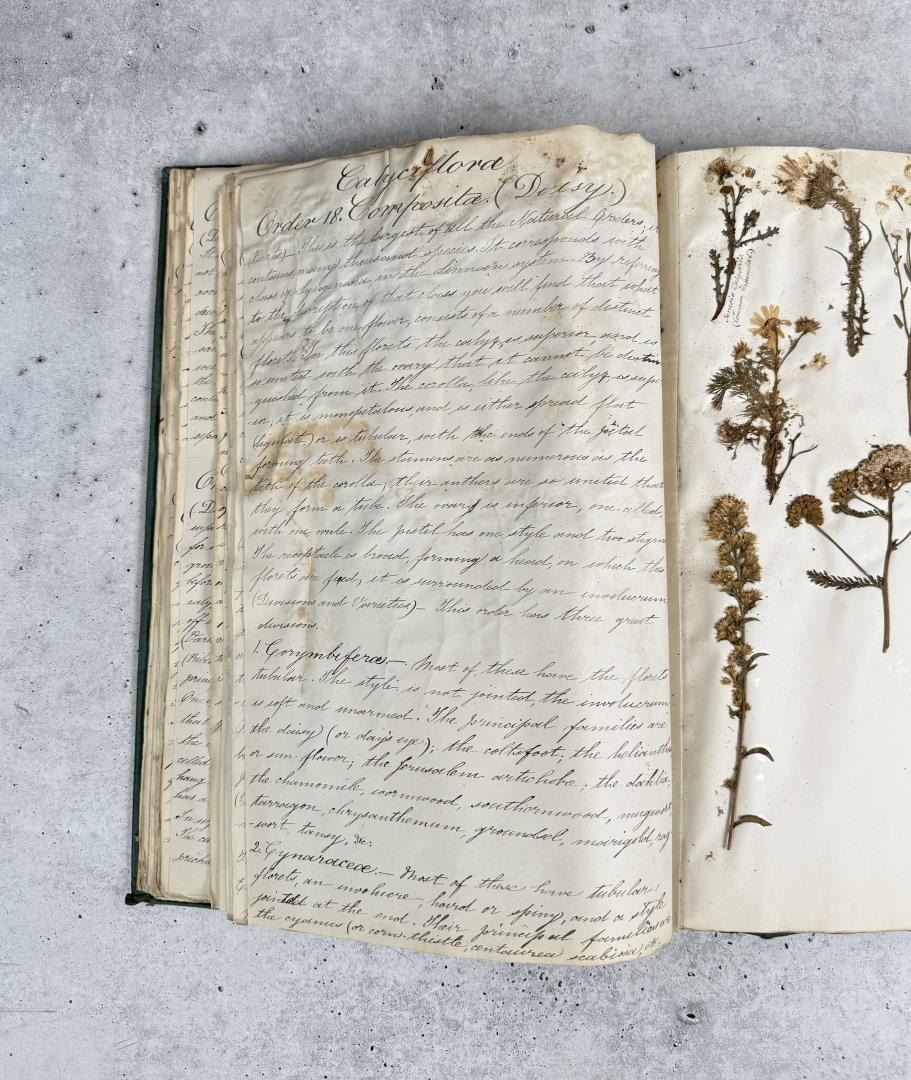 Calyciflora
Order 18. Compositæ. (Daisy.)
This is the largest of all the Natural Orders,
contains many thousand species. It corresponds with
class syngenesia, in the Linnæan system. By referring
to the description of that class you will find that what
appears to be one flower, consists of a number of distinct
florets. In this florets, the calyx, is superior and is
so united with the ovary that it cannot be distin
guished from it. The corolla, like the calyx, is supe
rior; it is monopetalous and is either spread flat
(ligulate,) or is tubular, with the ends of the petal
forming teeth. The stamens are as numerous as, the
teeth of the corolla; their anthers are so united that
they form a tube. The ovary is inferior, one celled,
with one ovule. The pistil has one style and two stigm
The receptacle is broad, forming a head, on which the
florets are fixed; it is surrounded by an involucrum
(Divisions and Varieties)— This order has three great
divisions.
1. Corymbiferæ.— Most of these have the florets
tubular. The style is not jointed, the involucrum
is soft and unarmed. The principal families are
the daisy) (or day's eye); the coltsfoot; the helianthu
or sun flower; the Jerusalem artichoke; the dahlia,
the chamomile, wormwood, southernwood, mugwort
tarragon, chrysanthemum, groundsel, marigold, rag
-wort, tansy, &c.
2. Cynaraceæ.— Most of these have tubular
florets, an involucre, hard or spiny, and a style
jointed at the end. Their principal families are
the cyanus (or corn-thistle, centaurea scabiosa), etc.